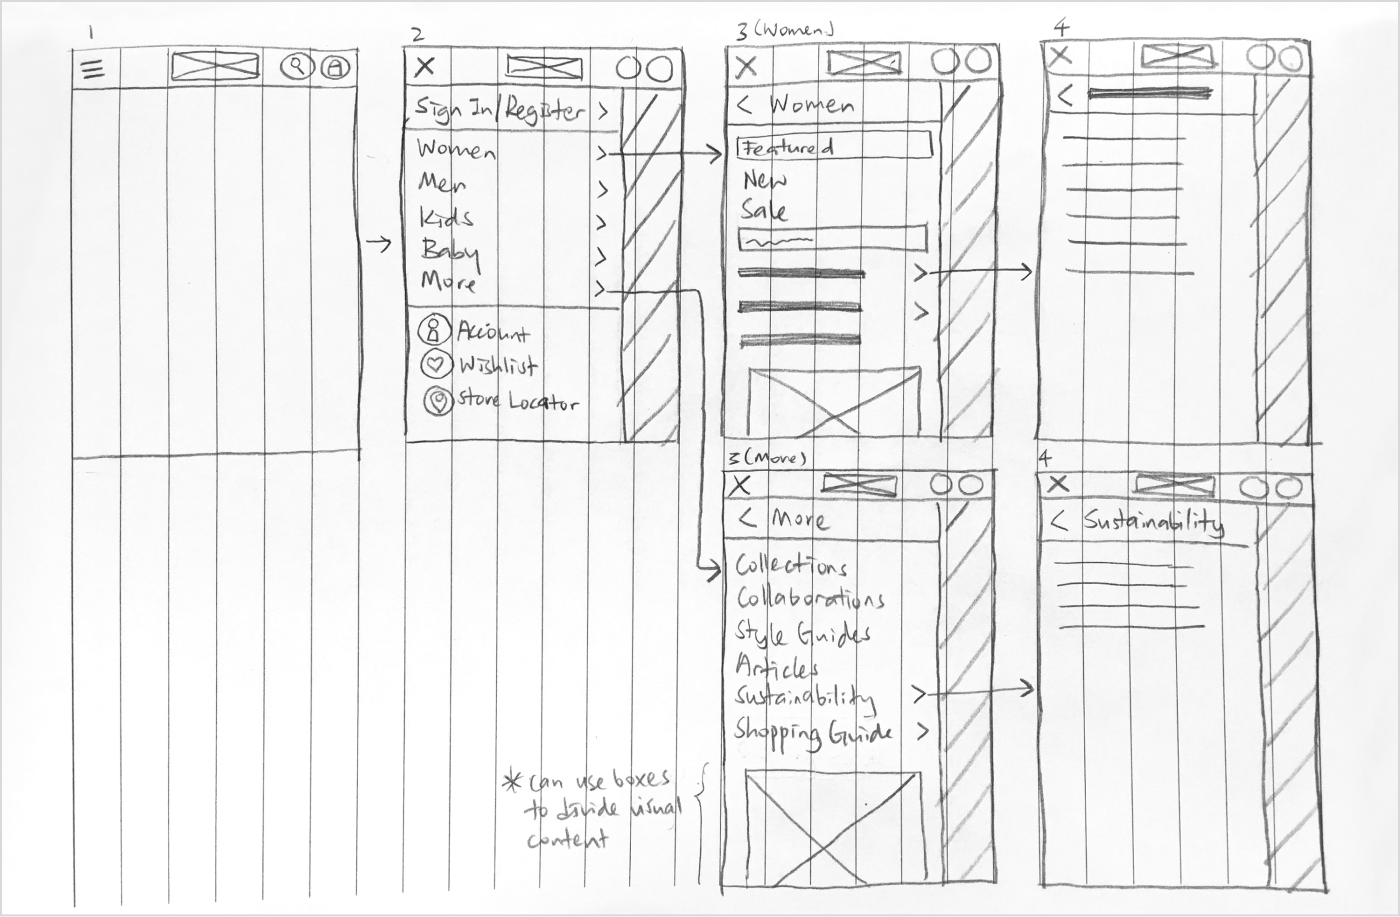 1
2
Sign In/Register >
Women >
Men >
Kids >
Baby >
More >
Account
Wishlist
Store Locator
3 (Women)
< Women
Featured
New
Sale
4
<
3 (More)
< More
Collections
Collaborations
Style Guides
Articles
Sustainability >
Shopping Guide >
* can use boxes
to divide visual
content
4
< Sustainability